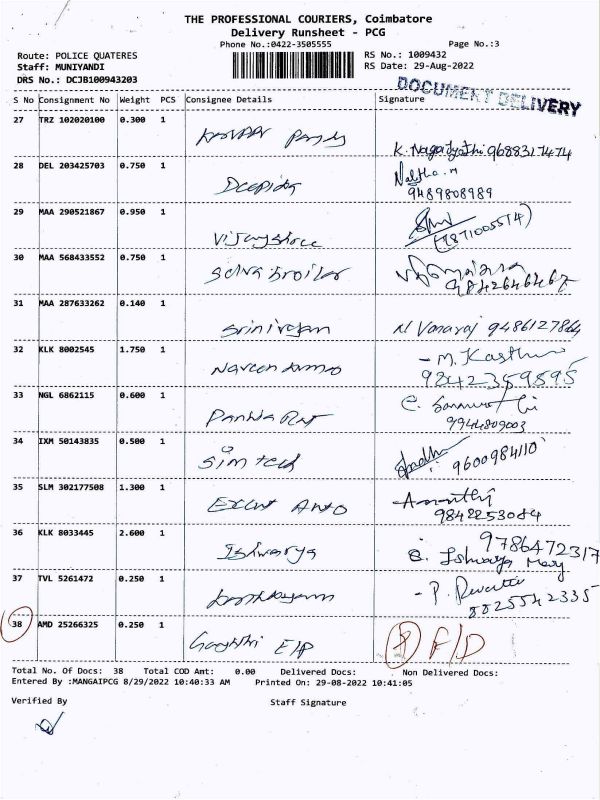 THE PROFESSIONAL COURIERS, Coimbatore
Delivery Runsheet - PCG
Phone No.:0422-3505555
Page No.:3
Route: POLICE QUATERES
RS No.: 1009432
Staff: MUNIYANDI
RS Date: 29-Aug-2022
DRS No.: DCJB100943203
DOCUMENT DELIVERY
S No Consignment No Weight PCS Consignee Details Signature
27 TRZ 102020100 0.300 1
K. Nagajyothi 9688317474
28 DEL 203425703 0.750 1
Deepika
Nalitha. M
9489808989
29 MAA 290521867 0.950 1
Vijayshree
30 MAA 568433552 0.750 1
Selva broiler
9842646467
31 MAA 287633262 0.140 1
Srinivasan
N Vanaraj 9486127864
32 KLK 8002545 1.750 1
Naveen
- M. Kasthuri
9842359595
33 NGL 6862115 0.600 1
9944809003
34 IXM 50143835 0.500 1
Sim tech
9600984110
35 SLM 302177508 1.300 1
Ananthi
9842253084
36 KLK 8033445 2.600 1
Ishwarya
9786472317
37 TVL 5261472 0.250 1
- P. Revathi
8825542335
38 AMD 25266325 0.250 1
F/D
Total No. Of Docs: 38 Total COD Amt: 0.00 Delivered Docs: Non Delivered Docs:
Entered By :MANGAIPCG 8/29/2022 10:40:33 AM Printed On: 29-08-2022 10:41:05
Verified By
Staff Signature